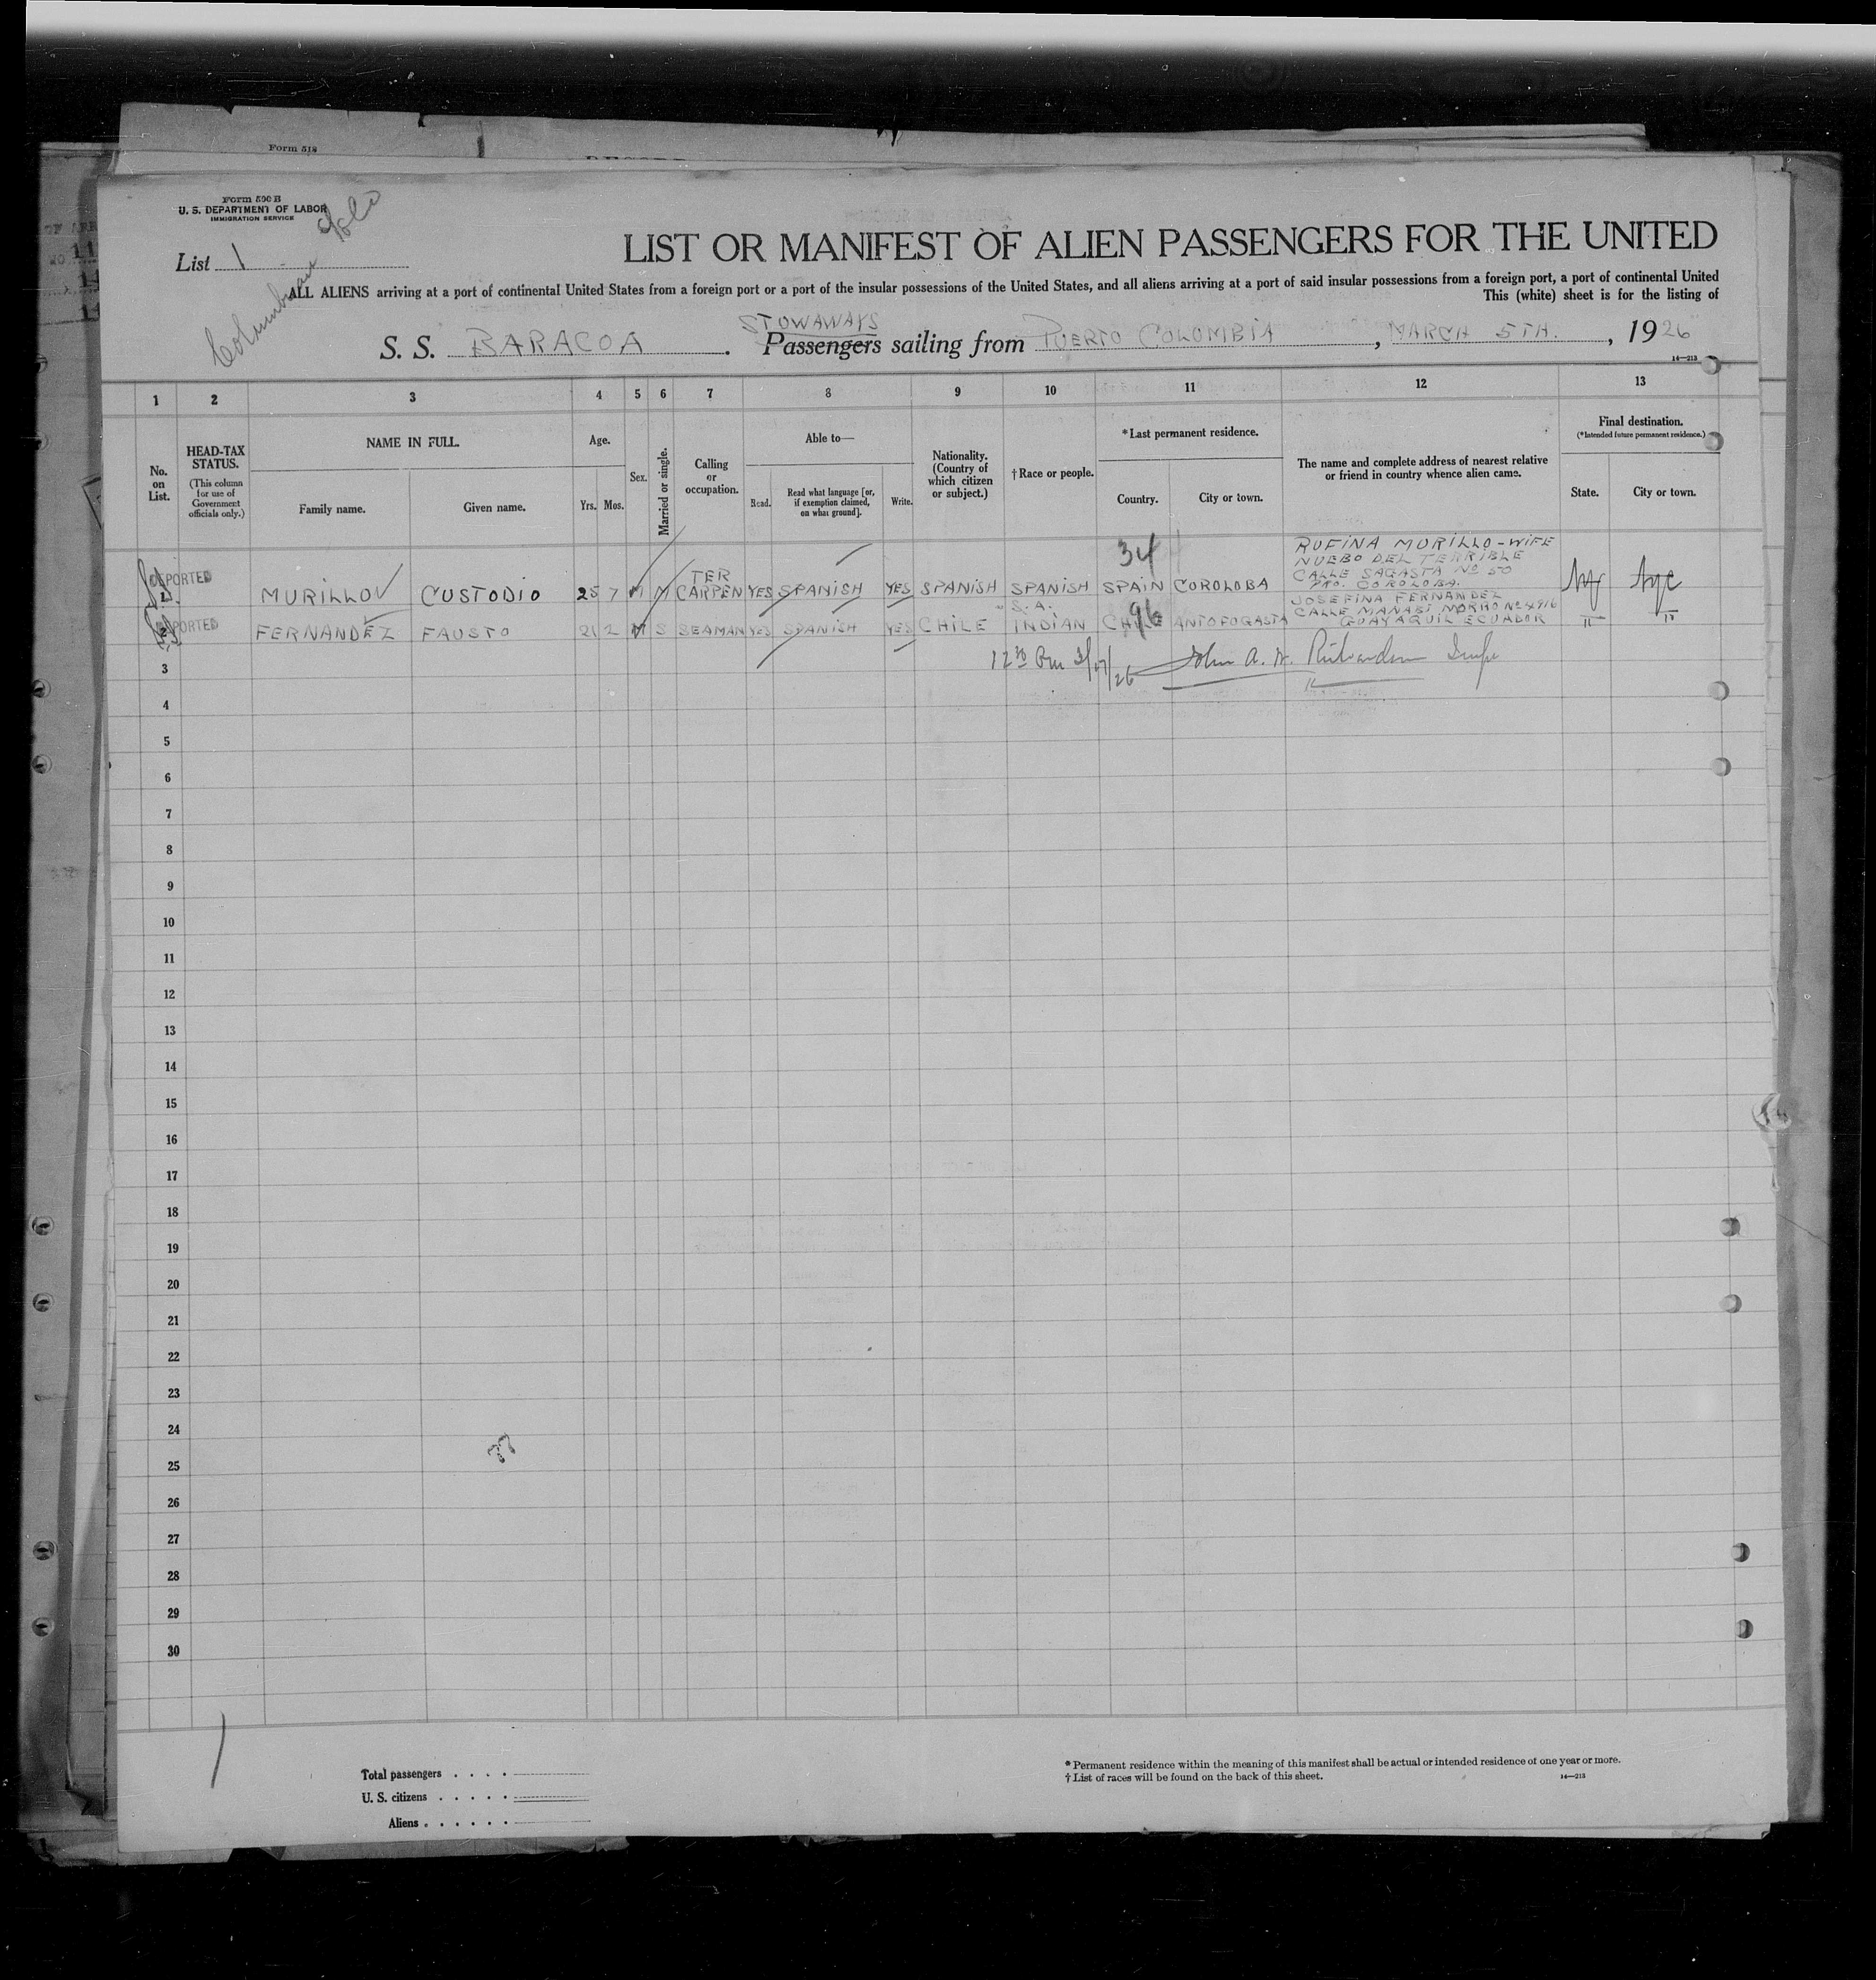 Form 518
Form 500 B
U. S. DEPARTMENT OF LABOR
IMMIGRATION SERVICE
List 1
LIST OR MANIFEST OF ALIEN PASSENGERS FOR THE UNITED
ALL ALIENS arriving at a port of continental United States from a foreign port or a port of the insular possessions of the United States, and all aliens arriving at a port of said insular possessions from a foreign port, a port of continental United
This (white) sheet is for the listing of
STOWAWAYS
S. S. BARACOA Passengers sailing from PUERTO COLOMBIA, MARCH 5TH., 1926
14—213
1 2 3 4 5 6 7 8 9 10 11 12 13
No. on List.
HEAD-TAX STATUS.
(This column for use of Government officials only.)
NAME IN FULL.
Family name. Given name.
Age.
Yrs. Mos.
Sex.
Married or single.
Calling or occupation.
Able to—
Read. Read what language [or, if exemption claimed, on what ground]. Write.
Nationality. (Country of which citizen or subject.)
†Race or people.
*Last permanent residence.
Country. City or town.
The name and complete address of nearest relative or friend in country whence alien came.
Final destination.
(*Intended future permanent residence.)
State. City or town.
34
DEPORTED
1 MURILLO CUSTODIO 25 7 M M CARPENTER YES SPANISH YES SPANISH SPANISH SPAIN COROLOBA
RUFINA MURILLO - WIFE
NUEBO DEL TERRIBLE
CALLE SAGASTA No 50
PRO. COROLOBA.
NY NYC
DEPORTED
96
2 FERNANDEZ FAUSTO 21 2 M S SEAMAN YES SPANISH YES CHILE S.A. INDIAN CHILE ANTOFOGASTA
JOSEFINA FERNANDEZ
CALLE MANABI MORRO No 4916
GUAYAQUIL ECUADOR
" "
3 12 30 Pm 3/17/26 John A. W. Richardson Insp
4
5
6
7
8
9
10
11
12
13
14
15
16
17
18
19
20
21
22
23
24
25
26
27
28
29
30
Total passengers
U. S. citizens
Aliens
* Permanent residence within the meaning of this manifest shall be actual or intended residence of one year or more.
† List of races will be found on the back of this sheet.
14—213